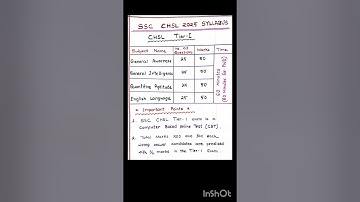 SSC CHSL 2025 SYLLABUS
CHSL Tier-I
Subject Name No. of Questions Marks Time
General Awareness 25 50
General Intelligence 25 50
Quantitive Aptitude 25 50
English Language 25 50
Important Points
1. SSC CHSL Tier-I exam is a
Computer Based Online Test (CBT).
2. Total Marks 200 and for each
wrong answer candidates are penalised
with ½ marks in the Tier-I Exam.
InShOt